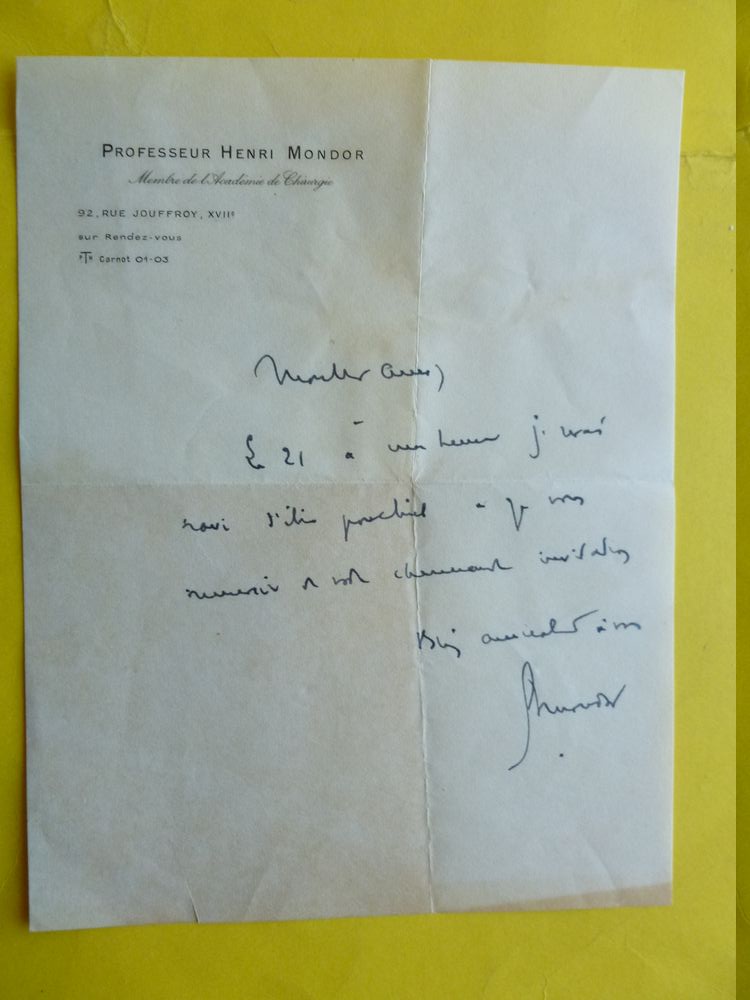 PROFESSEUR HENRI MONDOR
Membre de l'Académie de Chirurgie
92, RUE JOUFFROY, XVIIe
sur Rendez-vous
PTH Carnot 01-03
Mon cher ami,
Le 21 à une heure je serai
ravi d'être ponctuel et je vous
remercie de votre charmante invitation
Bien amicalement à vous
HMondor